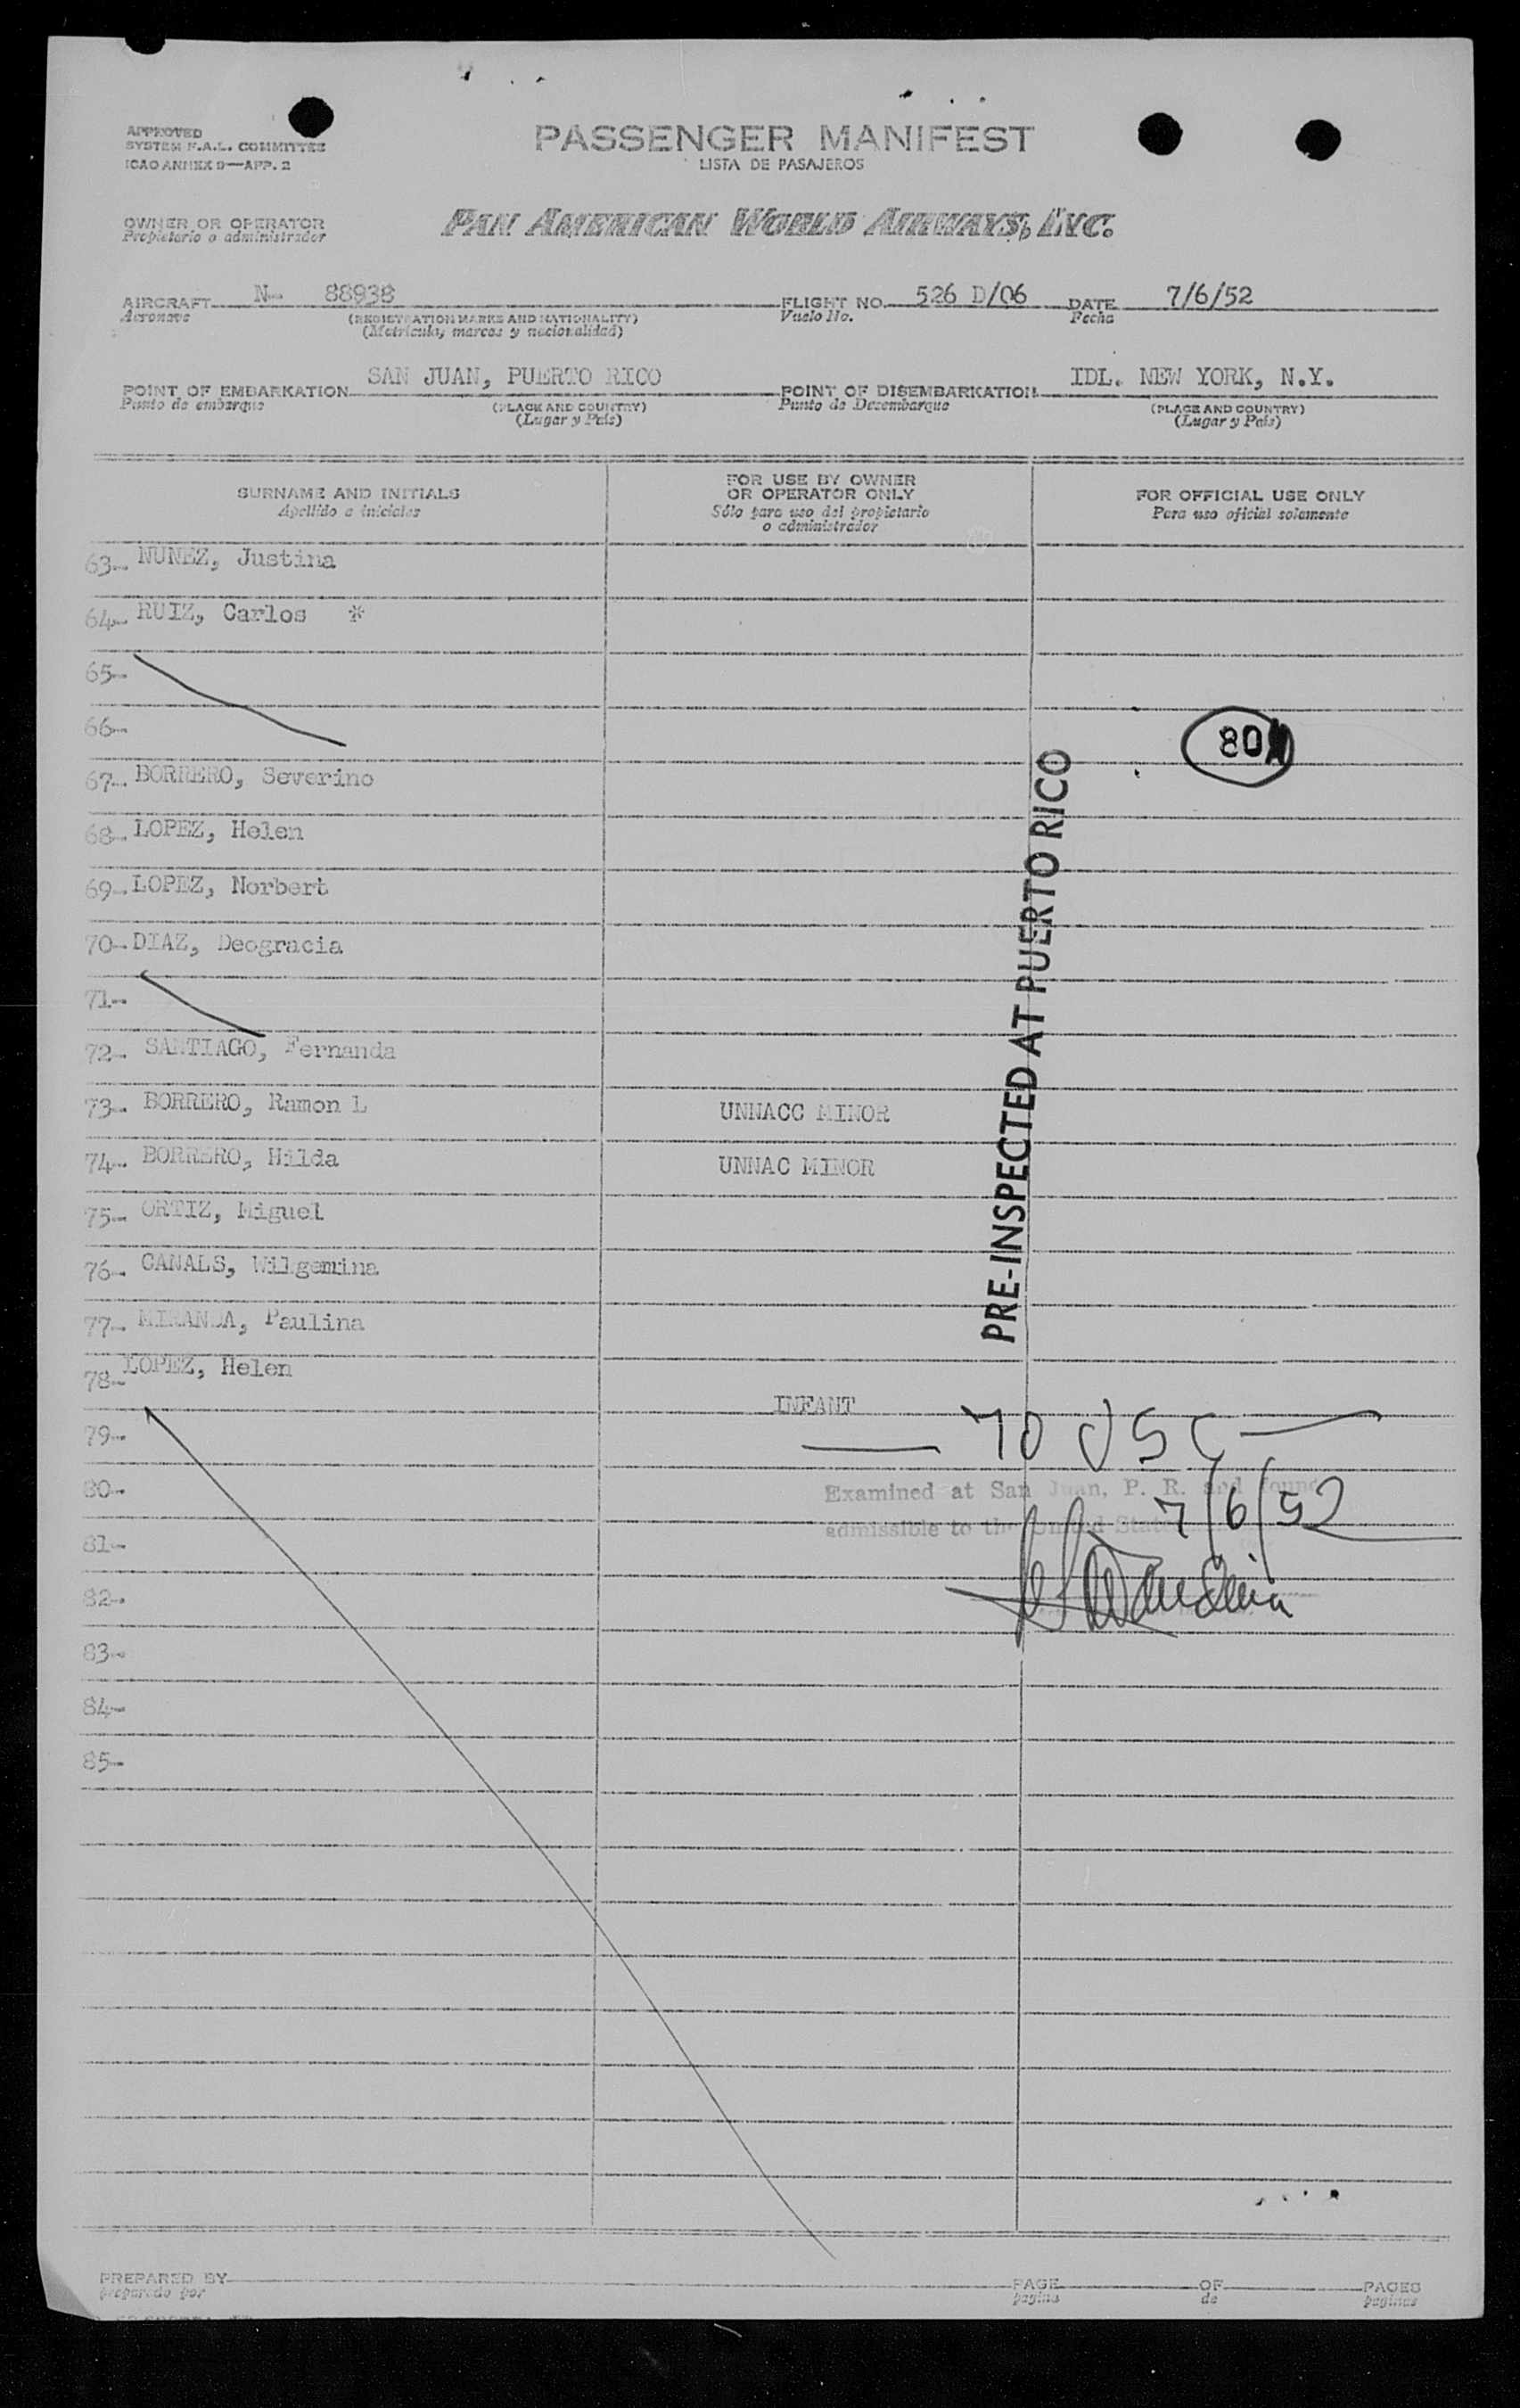 APPROVED
SYSTEM F.A.L. COMMITTEE
ICAO ANNEX 9—APP. 2
PASSENGER MANIFEST
LISTA DE PASAJEROS
OWNER OR OPERATOR
Propietario o administrador
PAN AMERICAN WORLD AIRWAYS, INC.
AIRCRAFT N- 88938 FLIGHT NO. 526 D/06 DATE 7/6/52
Aeronave (REGISTRATION MARKS AND NATIONALITY) Vuelo No. Fecha
(Matricula, marcas y nacionalidad)
POINT OF EMBARKATION SAN JUAN, PUERTO RICO POINT OF DISEMBARKATION IDL. NEW YORK, N.Y.
Punto de embarque (PLACE AND COUNTRY) Punto de Desembarque (PLACE AND COUNTRY)
(Lugar y País) (Lugar y País)
SURNAME AND INITIALS
Apellido e iniciales
FOR USE BY OWNER
OR OPERATOR ONLY
Sólo para uso del propietario
o administrador
FOR OFFICIAL USE ONLY
Para uso oficial solamente
63- NUNEZ, Justina
64- RUIZ, Carlos *
65-
66-
80
67- BORRERO, Severino
68- LOPEZ, Helen
69- LOPEZ, Norbert
70- DIAZ, Deogracia
71-
72- SANTIAGO, Fernanda
73- BORRERO, Ramon L UNNACC MINOR
74- BORRERO, Hilda UNNAC MINOR
75- ORTIZ, Miguel
76- CANALS, Wilgemina
77- MIRANDA, Paulina
78- LOPEZ, Helen INFANT
PRE-INSPECTED AT PUERTO RICO
79-
70 USC
80-
Examined at San Juan, P. R. and found
admissible to the United States
7/6/52
81-
82-
83-
84-
85-
PREPARED BY PAGE OF PAGES
preparado por pagina de paginas